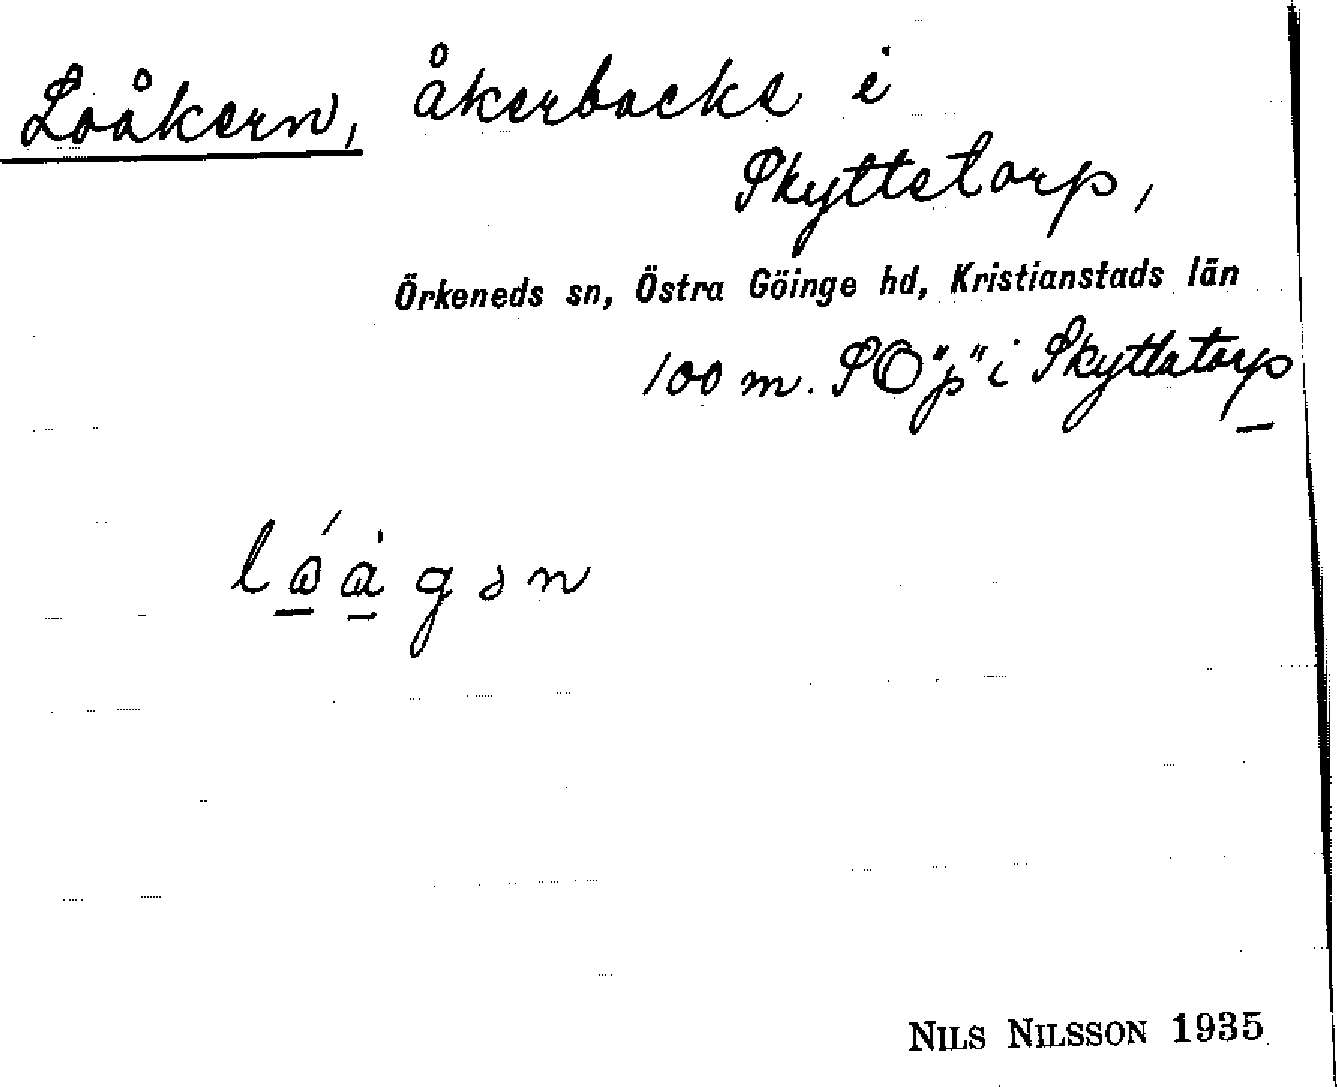 Loåkern, åkerbacke i
Skyttetorp,
Örkeneds sn, Östra Göinge hd, Kristianstads län
100 m. SO "p" i Skyttetorp
NILS NILSSON 1935